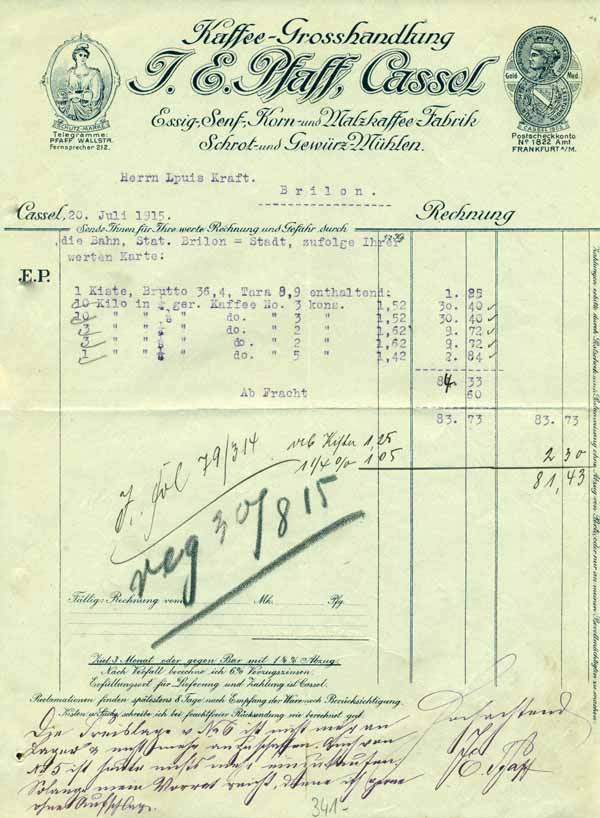 Kaffee-Grosshandlung
J. E. Pfaff, Cassel
Essig-, Senf-, Korn- und Malzkaffee-Fabrik
Schrot- und Gewürz-Mühlen.
SCHUTZ-MARKE
Telegramme:
PFAFF WALLSTR.
Fernsprecher 212.
Gold Med.
CASSEL 1905
Postscheckkonto
No 1822 Amt
FRANKFURT A/M.
Herrn Lpuis Kraft.
Brilon.
Cassel, 20. Juli 1915. Rechnung
Sende Ihnen für Ihre werte Rechnung und Gefahr durch
die Bahn, Stat. Brilon = Stadt, zufolge Ihrer
werten Karte:
E.P.
1 Kiste, Brutto 36,4, Tara 8,9 enthaltend: 1. 85
10 Kilo in ger. Kaffee No. 3 kons. 1,52 30. 40
10 " " do. " 3 " 1,52 30. 40
3 " " do. " 2 " 1,62 9. 72
3 " " do. " 2 " 1,62 9. 72
1 " " do. " 5 " 1,42 2. 84
84 33
Ab Fracht 60
83. 73 83. 73
79/314
Kisten 1,25
1 1/4 % 1 05
2 30
81,43
30/8 15
Fällig: Rechnung vom Mk. Pfg.
Ziel 3 Monat oder gegen Bar mit 1 1/4 % Abzug.
Nach Verfall berechne ich 6% Verzugszinsen.
Erfüllungsort für Lieferung und Zahlung ist Cassel.
Reclamationen finden spätestens 8 Tage nach Empfang der Ware noch Berücksichtigung.
Kisten u. Säcke schreibe ich bei frachtfreier Rücksendung wie berechnet gut.
Die Preislage v. No 6 ist nicht mehr am
Lager & nicht mehr anzuschaffen. Auch von
No 5 ist heute nichts mehr
Solange mein Vorrat reicht, diene ich gerne
ohne Aufschlag.
Hochachtend
J. E. Pfaff
341-